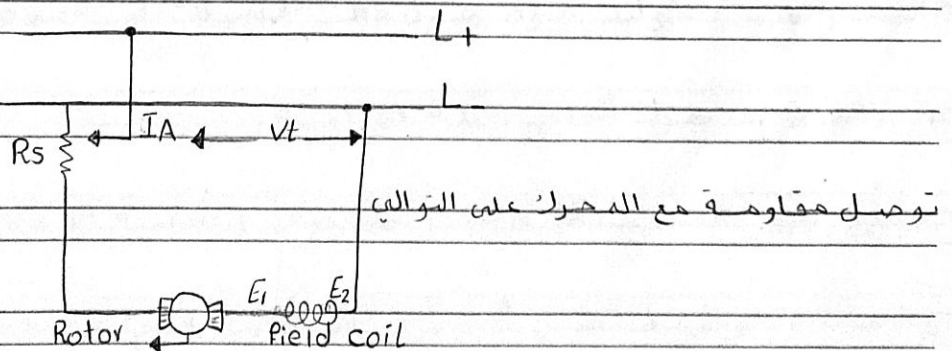 L+
L-
Rs
IA
Vt
توصل مقاومة مع المحرك على التوالي
E1
E2
Rotor
Field Coil